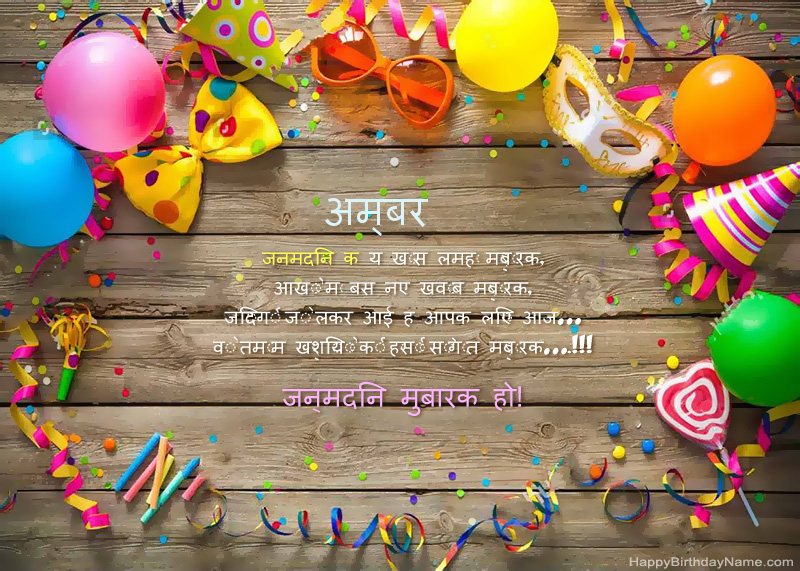 अम्बर
जनमदनि क य खास लमहा मबारक,
आखोमा बस नए खवाब मबारक,
जदिगी जो लकर आई ह आपक लएि आज...
वो तमाम खशयिो की हसी सौगात मबारक...!!!
जन्मदनि मुबारक हो!
HappyBirthdayName.com